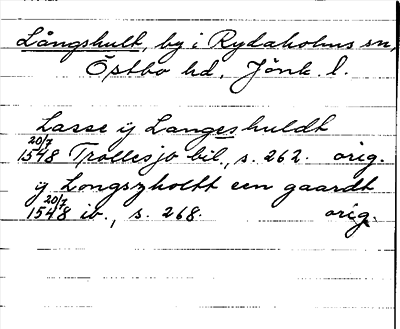 Långshult, by i Rydaholms sn,
Östbo hd, Jönk. l.
Lasse ij Langeshuldt
20/7 1548 Trollesjö bil., s. 262. orig.
ij Longszholtt een gaardt
20/7 1548 ib., s. 268. orig.